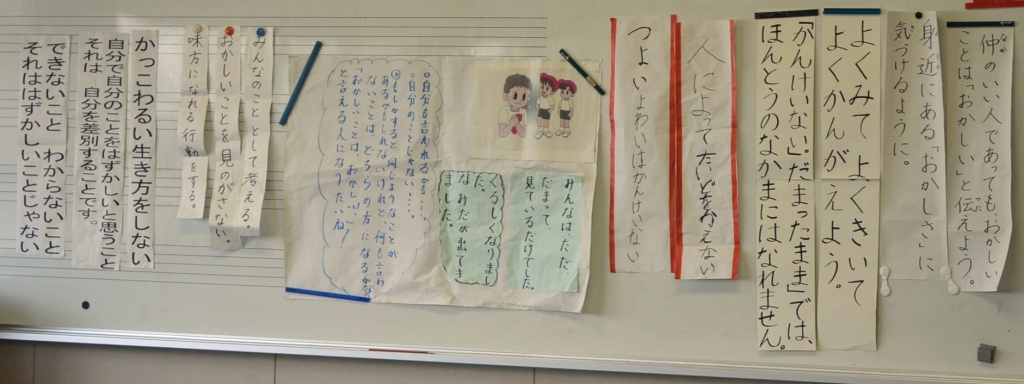 仲のいい人であっても、おかしい
ことは「おかしい」と伝えよう。
身近にある「おかしさ」に
気づけるように。
よくみて よくきいて
よくかんがえよう。
「かんけいない」「だまったまま」では、
ほんとうのなかまにはなれません。
人によってたいどをかえない
つよいよわいはかんけいない
みんなはただ、
だまって、
見ているだけでした。
くるしくなりまし
た。
なみだが出てき
ました。
自分も言われるかも。
自分のことじゃない…。
もしかすると、同じようなことが
あるかもしれないけれど、何も言わ
ないことは、どちらの方になるかな
「おかしいことは、おかしい。」
と言える人になりたいね!
みんなのこととして考える。
おかしいことを見のがさない。
味方になれる行動をする。
かっこわるい生き方をしない
自分で自分のことをはずかしいと思うこと
それは 自分を差別することです。
できないこと わからないこと
それははずかしいことじゃない